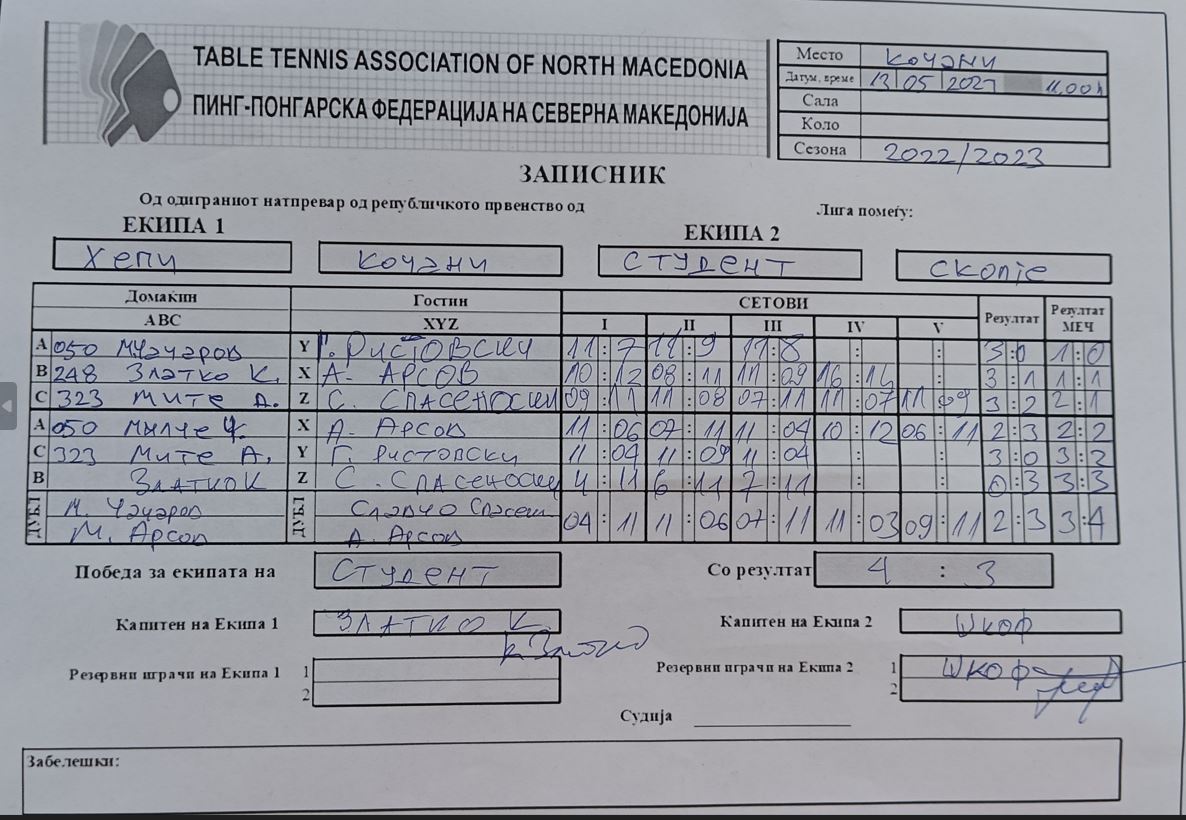 TABLE TENNIS ASSOCIATION OF NORTH MACEDONIA
ПИНГ-ПОНГАРСКА ФЕДЕРАЦИЈА НА СЕВЕРНА МАКЕДОНИЈА
Место Кочани
Датум, време 13 05 11,00 h
Сала
Коло
Сезона 2022/2023
ЗАПИСНИК
Од одиграниот натпревар од републичкото првенство од Лига помеѓу:
ЕКИПА 1 ЕКИПА 2
Хепи Кочани СТУДЕНТ Скопје
Домаќин Гостин СЕТОВИ Резултат Резултат МЕЧ
ABC XYZ I II III IV V
A 050 М Чачаров Y Г. РИСТОВСКИ 11:7 11:9 11:8 : : 3:0 1:0
B 248 Златко К. X А. АРСОВ 10:12 08:11 11:09 : 3:1 1:1
C 323 Мите А. Z С. СПАСЕНОСКИ 09:11 11:08 07:11 11:07 11:09 3:2 2:1
A 050 X А. Арсов 11:06 07:11 11:04 10:12 06:11 2:3 2:2
C 323 Мите А. Y Г. Ристовски 11:04 11:09 11:04 : : 3:0 3:2
B Златко К Z С. СПАСЕНОСКИ 4:11 6:11 7:11 : : 0:3 3:3
ДУБЛ М. Чачаров ДУБЛ Славчо Спасен. 04:11 11:06 07:11 11:03 09:11 2:3 3:4
М. Арсов А. Арсов
Победа за екипата на СТУДЕНТ Со резултат 4 : 3
Капитен на Екипа 1 ЗЛАТКО К. Капитен на Екипа 2 ШКОФ
Резервни играчи на Екипа 1 1 Резервни играчи на Екипа 2 1 ШКОФ
2 2
Судија
Забелешки: